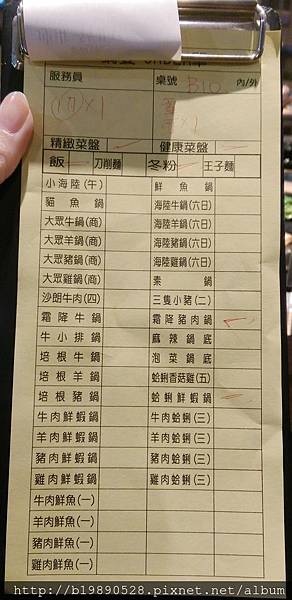 服務員 桌號 B10 內/外
x1 x1
精緻菜盤 健康菜盤
飯 刀削麵 冬粉 王子麵
小海陸(午) 鮮魚鍋
貓魚鍋 海陸牛鍋(六日)
大眾牛鍋(商) 海陸羊鍋(六日)
大眾羊鍋(商) 海陸豬鍋(六日)
大眾豬鍋(商) 海陸雞鍋(六日)
大眾雞鍋(商) 素鍋
沙朗牛肉(四) 三隻小豬(二)
霜降牛鍋 霜降豬肉鍋
牛小排鍋 麻辣鍋底
培根牛鍋 泡菜鍋底
培根羊鍋 蛤蜊香菇雞(五)
培根豬鍋 蛤蜊鮮蝦鍋
牛肉鮮蝦鍋 牛肉蛤蜊(三)
羊肉鮮蝦鍋 羊肉蛤蜊(三)
豬肉鮮蝦鍋 豬肉蛤蜊(三)
雞肉鮮蝦鍋 雞肉蛤蜊(三)
牛肉鮮魚(一)
羊肉鮮魚(一)
豬肉鮮魚(一)
雞肉鮮魚(一)
http://b19890528.pixnet.net/album